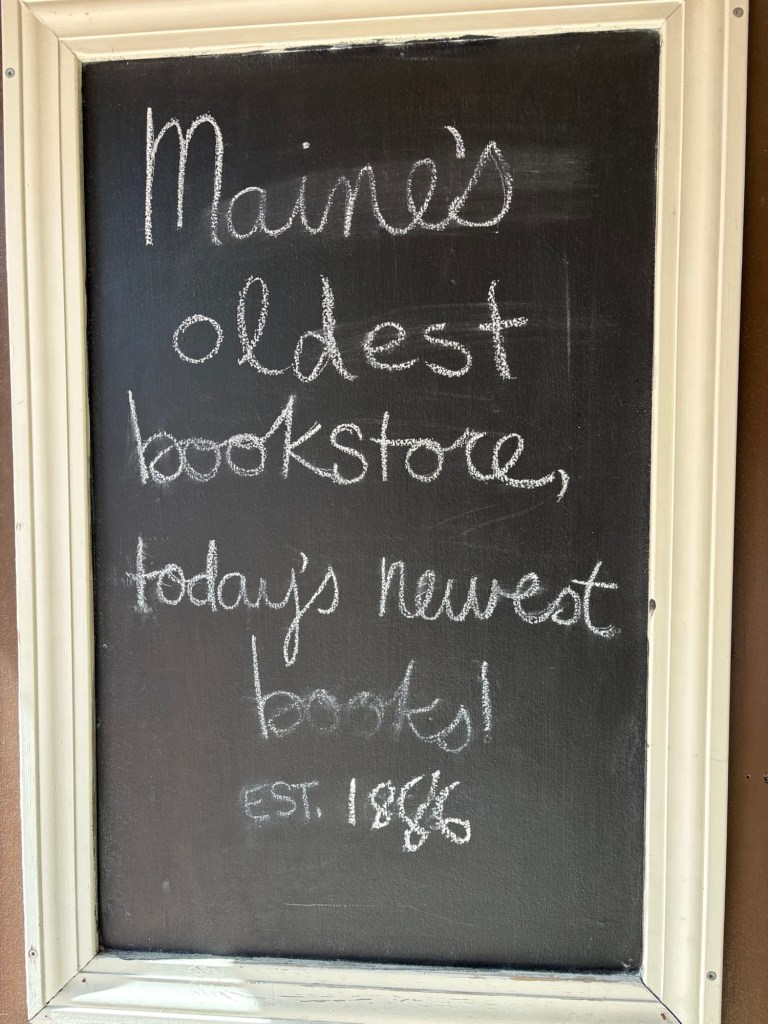 Maine's
oldest
bookstore,
today's newest
books!
EST. 1886